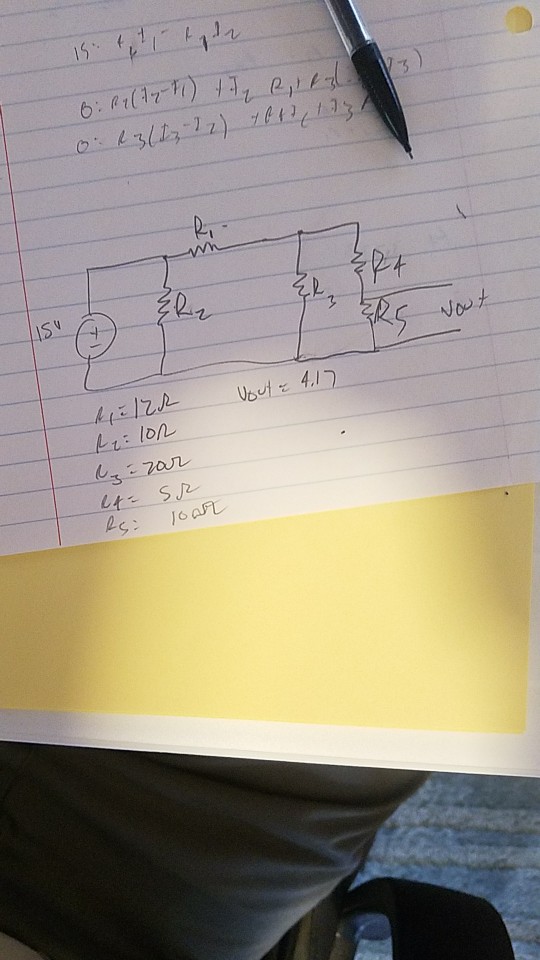 15: R₂I₁ - R₂I₂
0: R₂(I₂-I₁) + I₂ R₁ + R₃( I₃)
0: R₃(I₃-I₂) + R4I + I3
R₁
R₂
R₃
R4
R5
15V
+
-
Vout
Vout = 4.17
R₁ = 12Ω
R₂ = 10Ω
R₃ = 20Ω
R4 = 5Ω
R5 = 10Ω